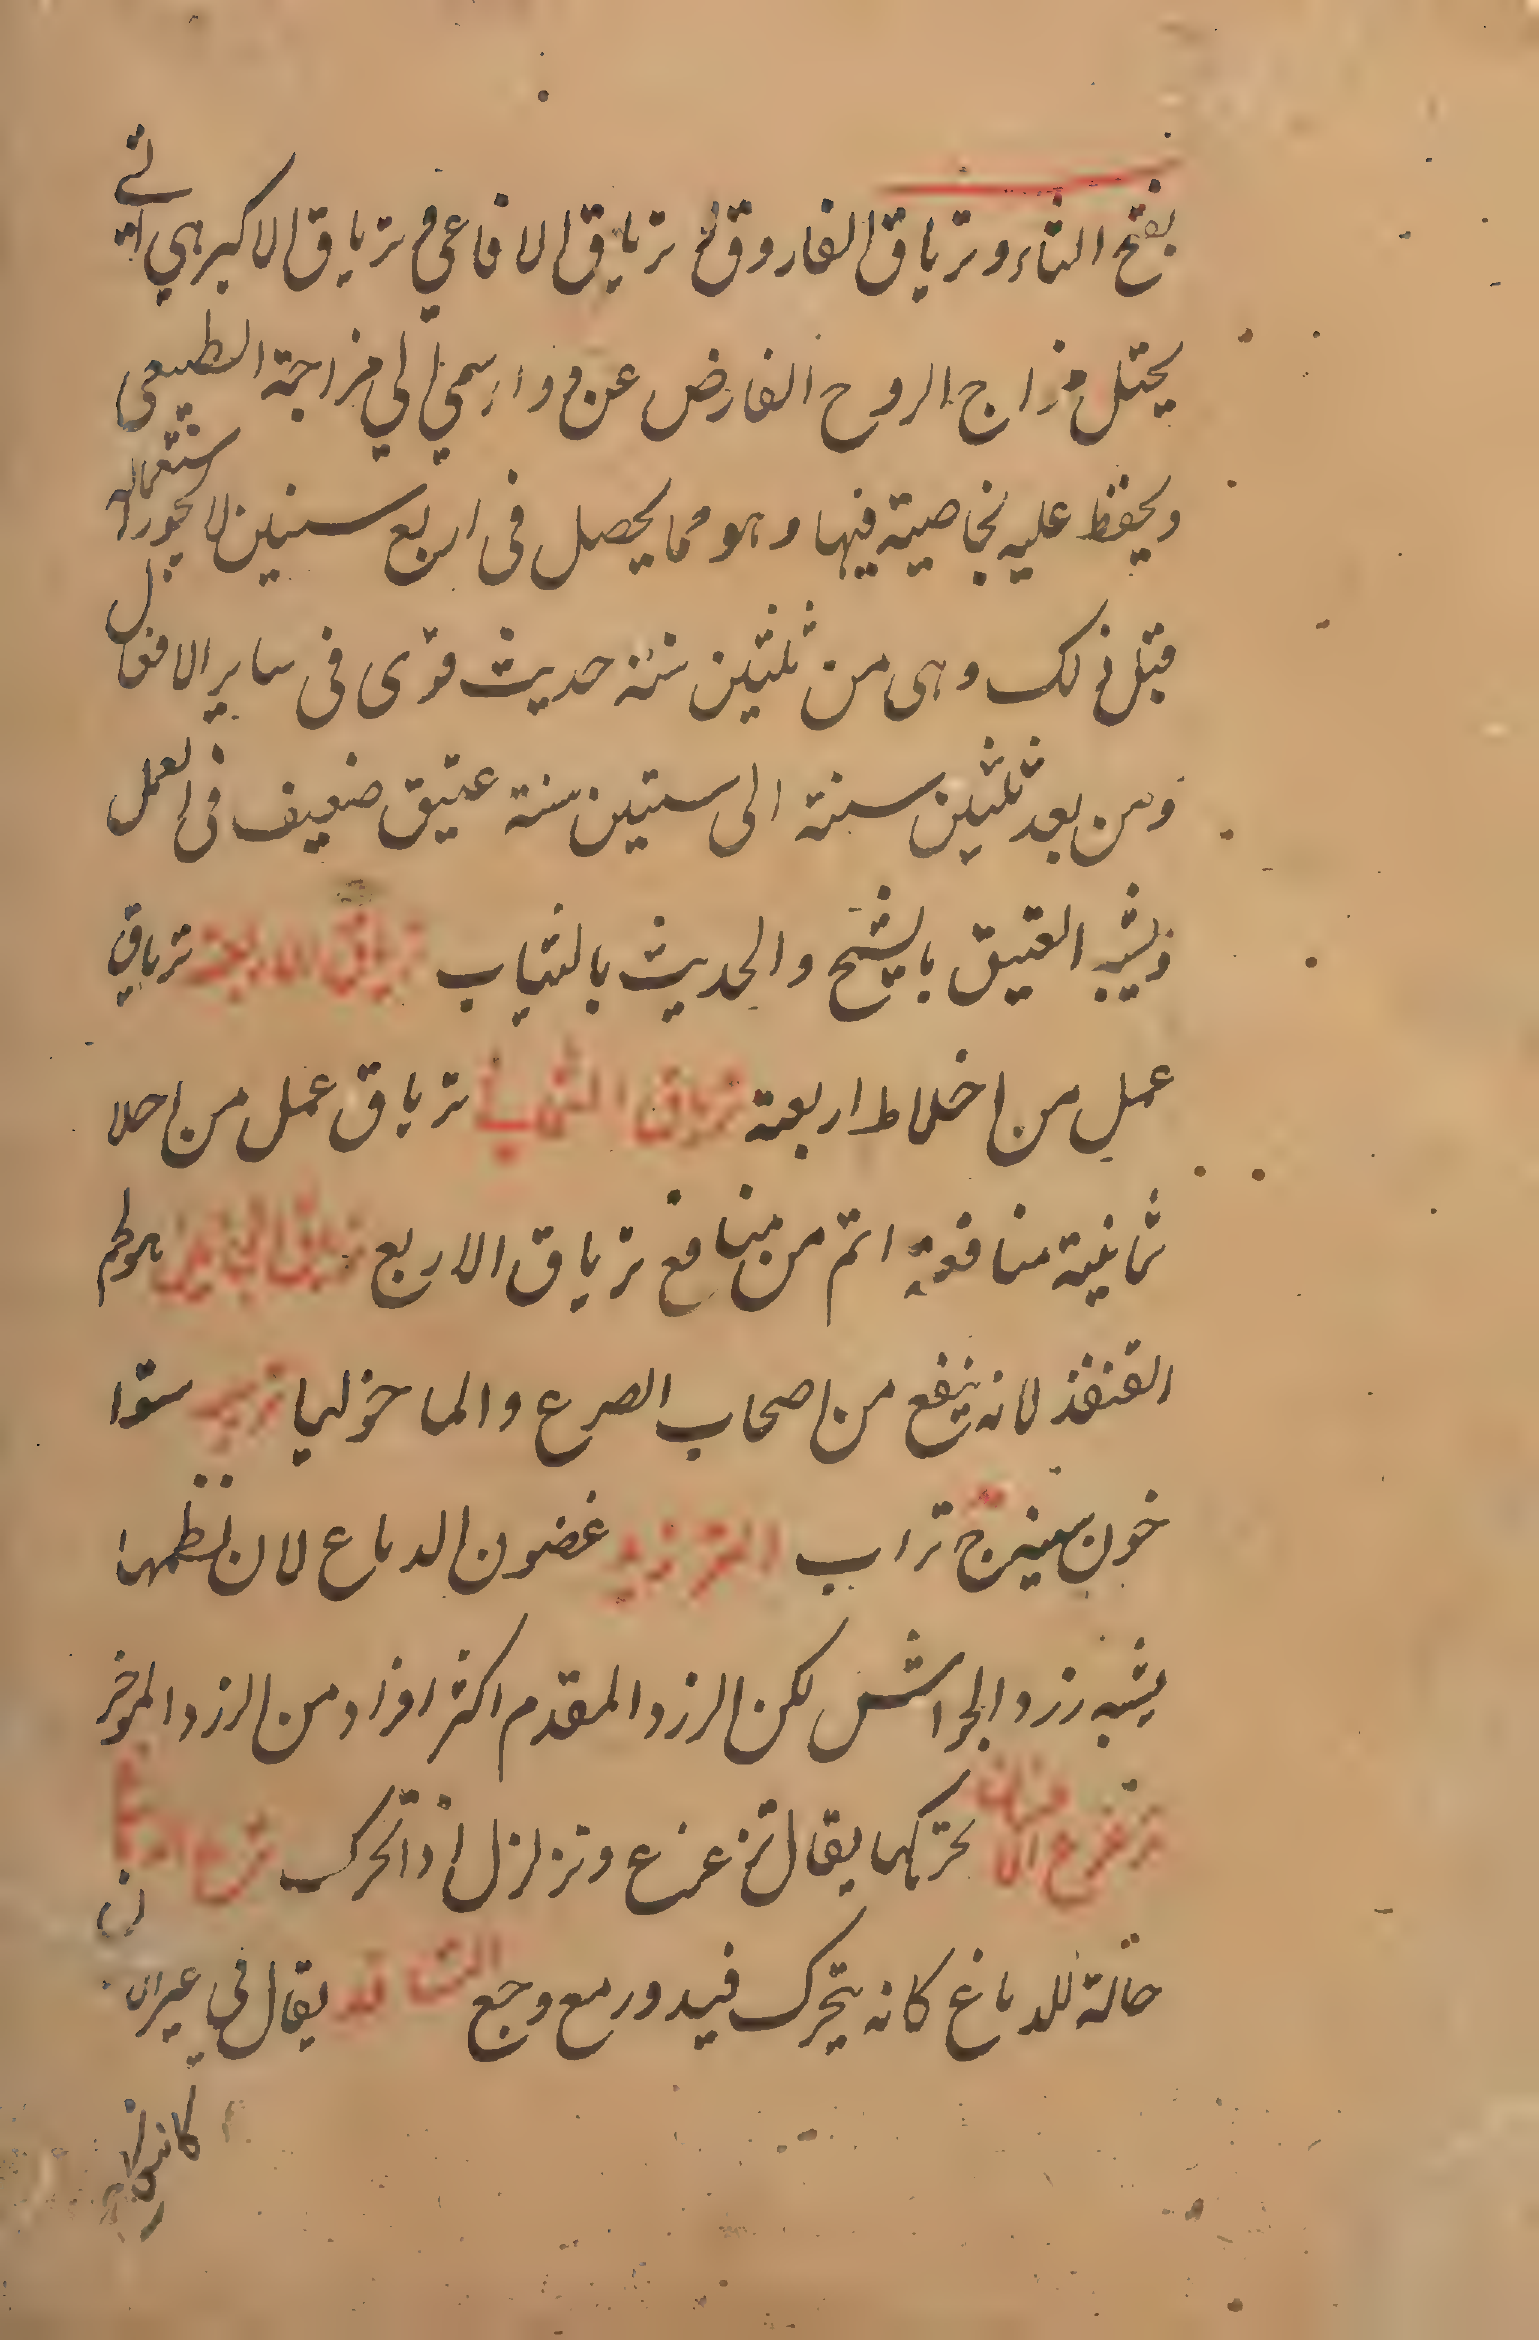 بفتح التاء و ترياق الفاروق و ترياق الافاعي و ترياق الاكبر هي التي
يحتل مزاج الروح الفارض عن وارسمي الي مزاجة الطبيعى
ويحفظ عليه بخاصية فيها وهو مما يحصل فى اربع سنين لا يجوز استعماله
قبل ذلك وهى من ثلثين سنة حديث قوى فى ساير الافعال
ومن بعد ثلثين سنة الى ستين سنة عتيق ضعيف فى العمل
ويشبه العتيق بالشيخ والحديث بالشاب ترياق الاربعة ترياق
عمل من اخلاط اربعة ترياق الثمانية ترياق عمل من اخلا
ثمانية منافعه اتم من منافع ترياق الاربع ترياق هو لحم
القنفذ لانه ينفع من اصحاب الصرع والماخوليا تربد ستوا
خون سفيدج تراب التزريد غضون الدماغ لان نظمها
يشبه زرد الجواشن لكن الزرد المقدم اكثر افراد من الزرد الموخر
تزعزع الاسنان تحركها يقال تزعزع وتزلزل اذا تحرك تزعزع الدماغ
حالة للدماغ كانه يتحرك فيه دور مع وجع يقال في غير ان